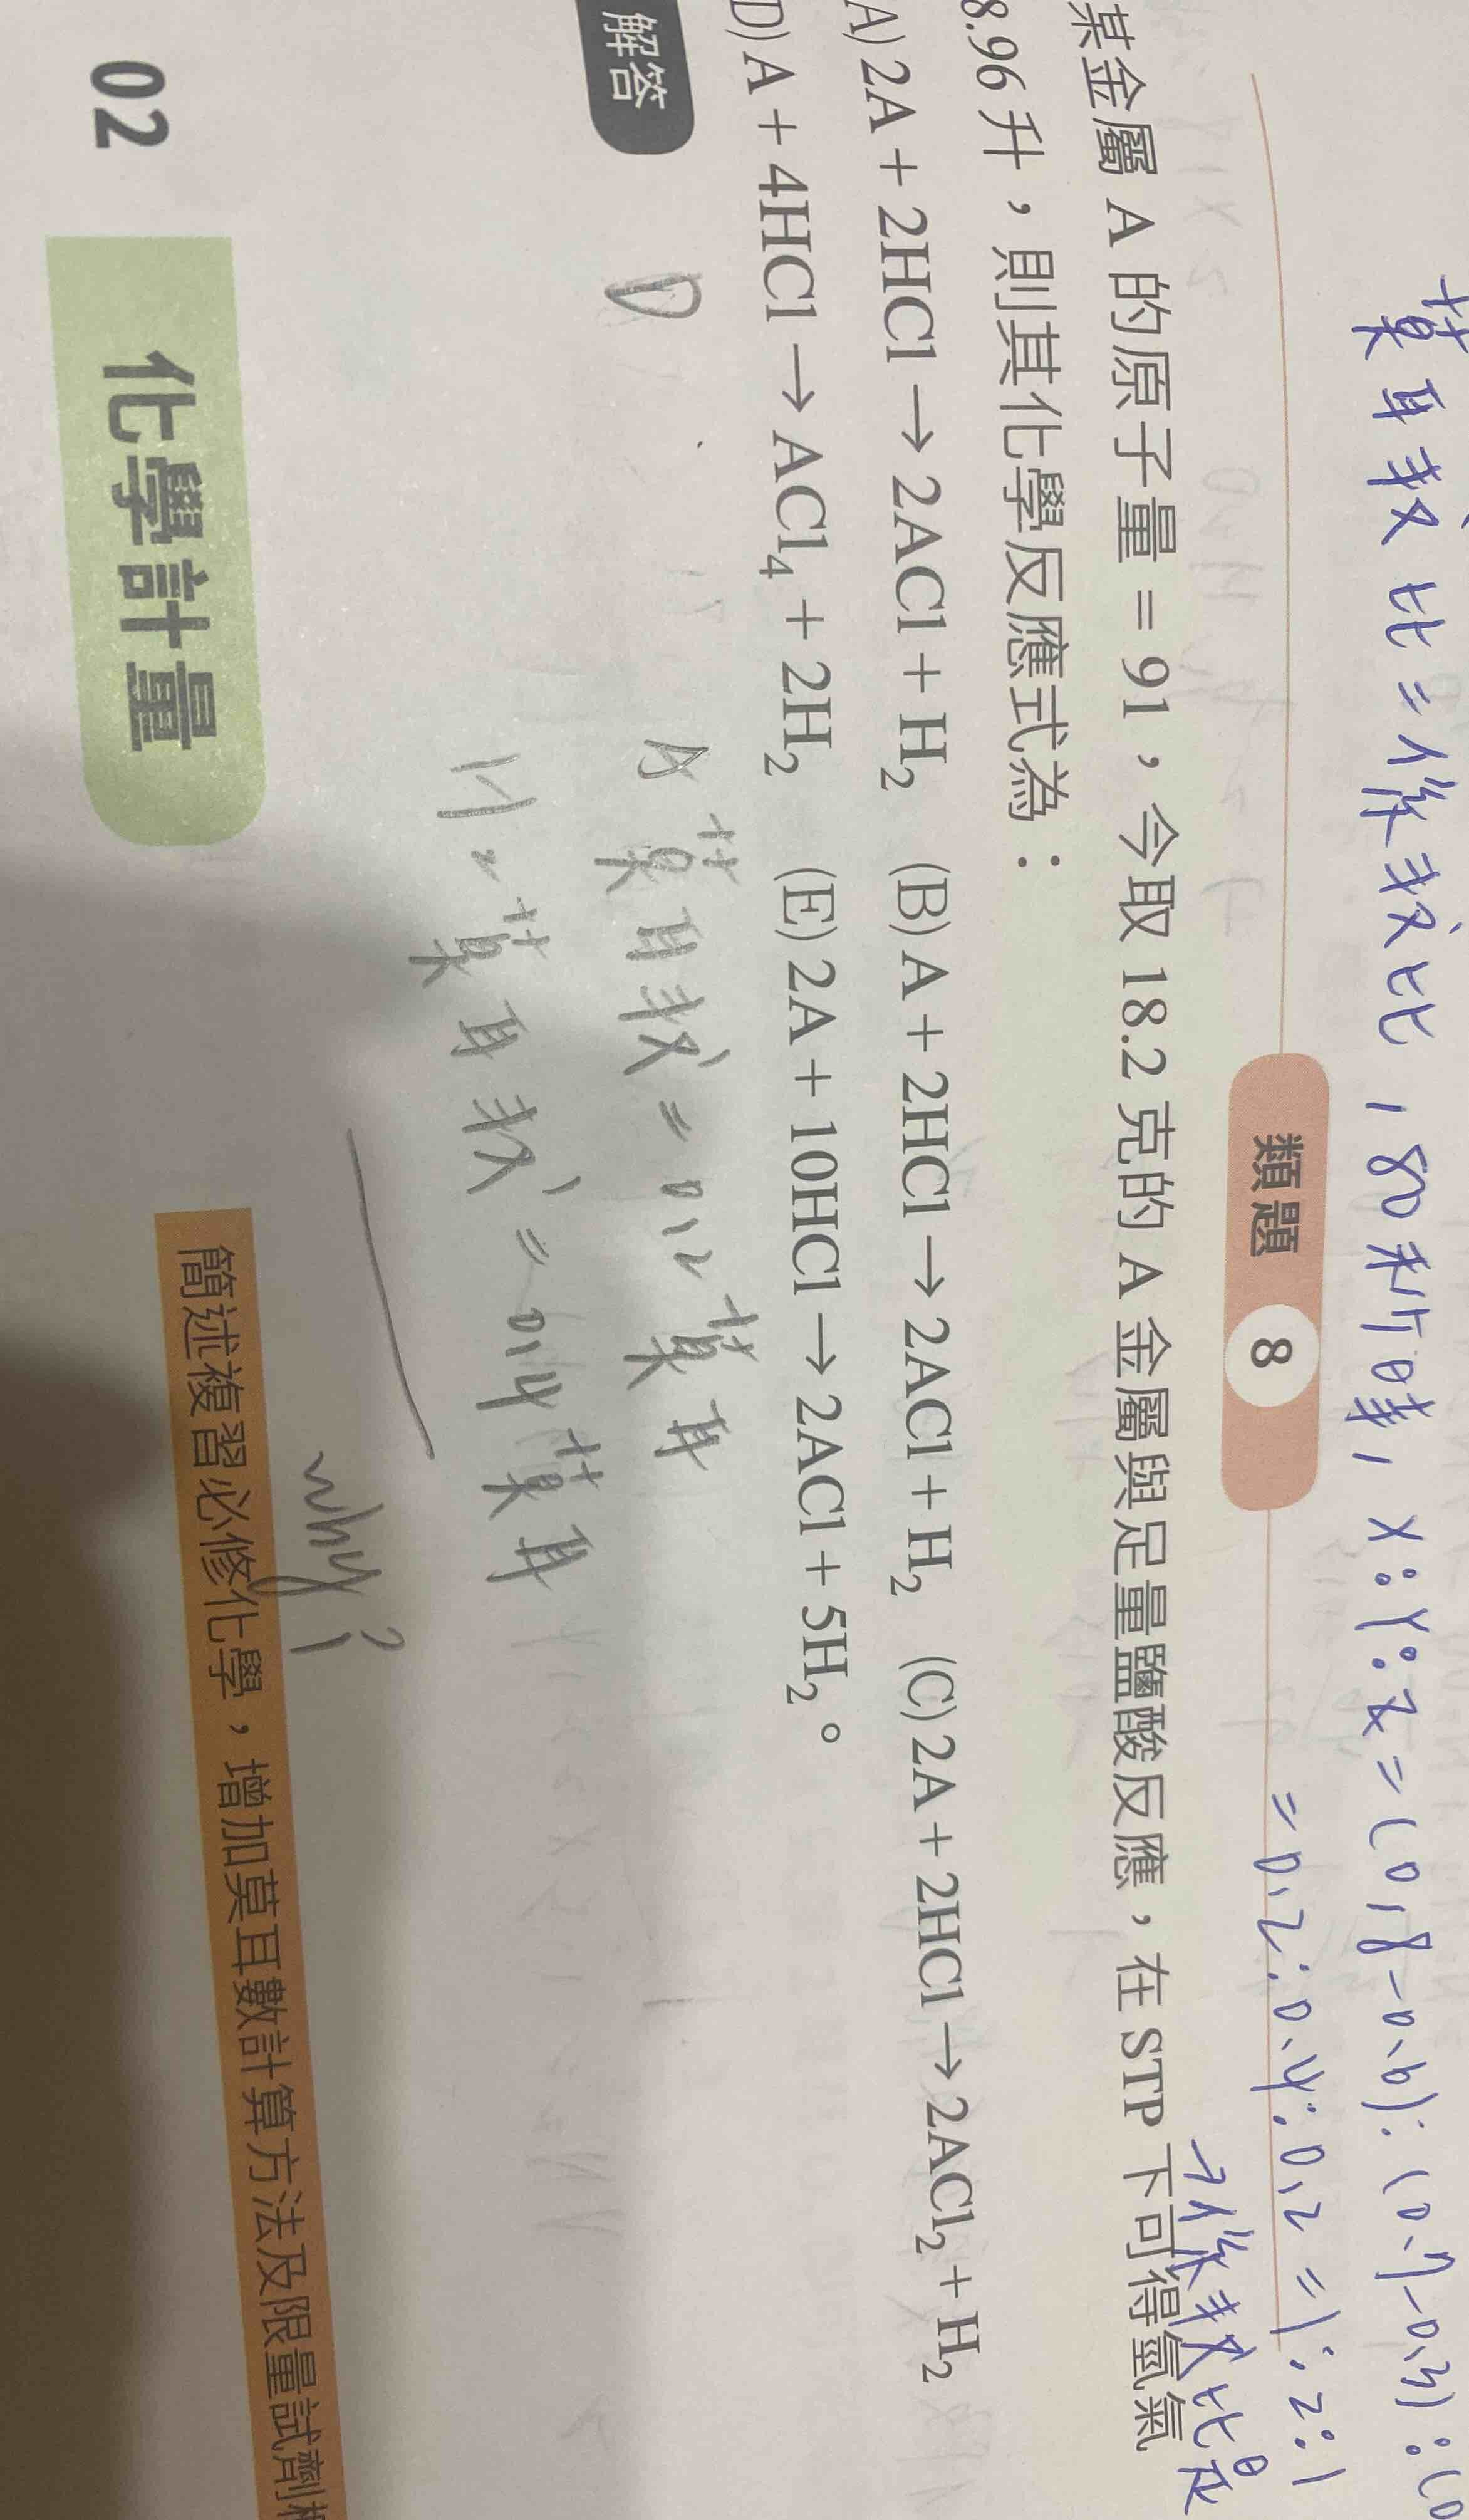 莫耳數比=係數比,80秒時,X:Y:Z=(0.8-0.6):(0.7-0.3):(0
=0.2:0.4:0.2=1:2:1
→係數比是
類題 8
某金屬 A 的原子量 = 91,今取 18.2 克的 A 金屬與足量鹽酸反應,在 STP 下可得氫氣
8.96 升,則其化學反應式為:
A) 2A + 2HCl → 2ACl + H₂ (B) A + 2HCl → 2ACl + H₂ (C) 2A + 2HCl → 2ACl₂ + H₂
D) A + 4HCl → ACl₄ + 2H₂ (E) 2A + 10HCl → 2ACl + 5H₂。
解答 D
A莫耳數=0.2莫耳
H₂莫耳數=0.4莫耳
why?
02 化學計量
簡述複習必修化學,增加莫耳數計算方法及限量試劑